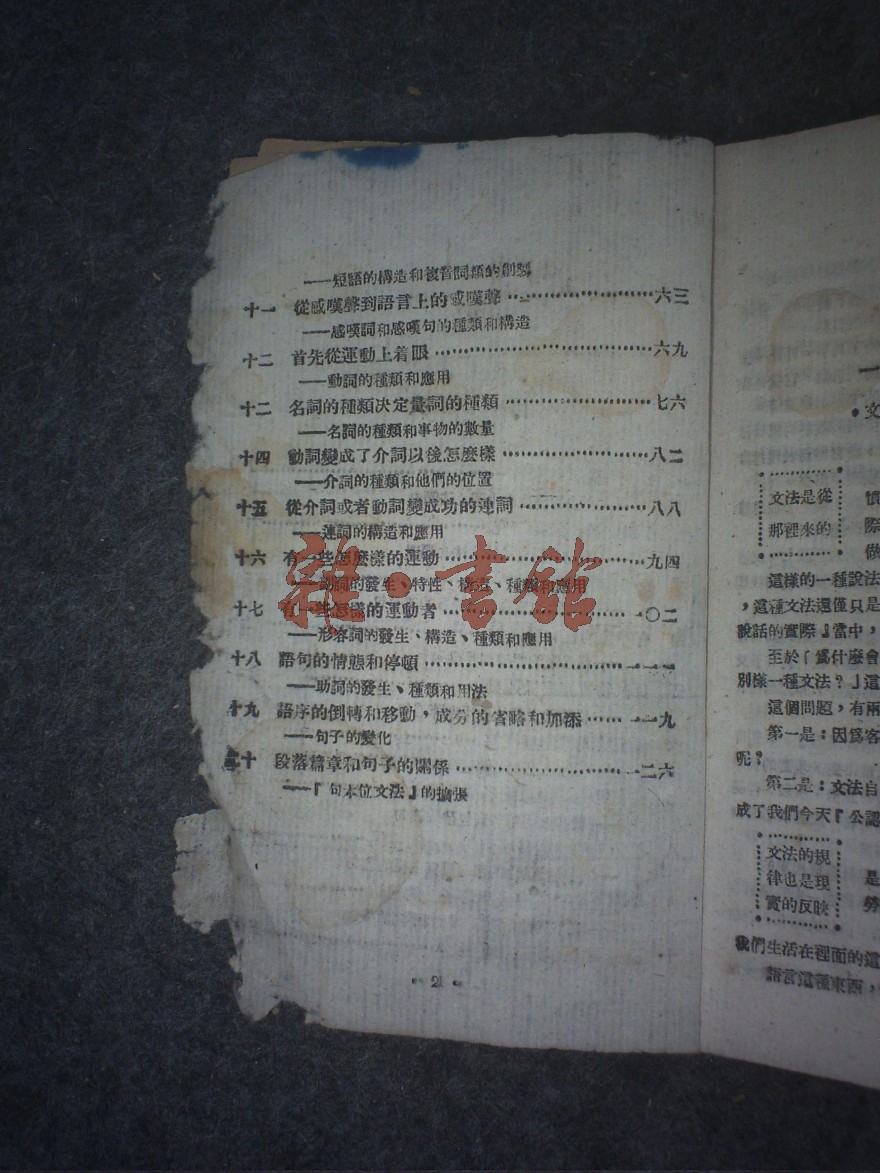 ——短語的構造和複音詞類的創製
十一 從感嘆聲到語言上的感嘆聲……………………六三
——感嘆詞和感嘆句的種類和構造
十二 首先從運動上着眼……………………六九
——動詞的種類和應用
十二 名詞的種類決定量詞的種類……………………七六
——名詞的種類和事物的數量
十四 動詞變成了介詞以後怎麼樣……………………八二
——介詞的種類和他們的位置
十五 從介詞或者動詞變成功的連詞……………………八八
——連詞的構造和應用
十六 有一些怎麼樣的運動……………………九四
——副詞的發生、特性、構造、種類和應用
十七 有一些怎樣的運動者……………………一〇二
——形容詞的發生、構造、種類和應用
十八 語句的情態和停頓……………………一一一
——助詞的發生、種類和用法
十九 語序的倒轉和移動，成分的省略和加添……一一九
——句子的變化
二十 段落篇章和句子的關係……………………一二六
——『句本位文法』的擴張
2
雜·書館
一
文
文法是從
那裡來的
慣
際
做
這樣的一種說法
，這種文法還僅只是
說話的實際』當中，
至於「爲什麼會
別樣一種文法？」這
這個問題，有兩
第一是：因爲客
呢？
第二是：文法自
成了我們今天『公認
文法的規
律也是現
實的反映
是
勞
我們生活在裡面的這
語言這種東西，